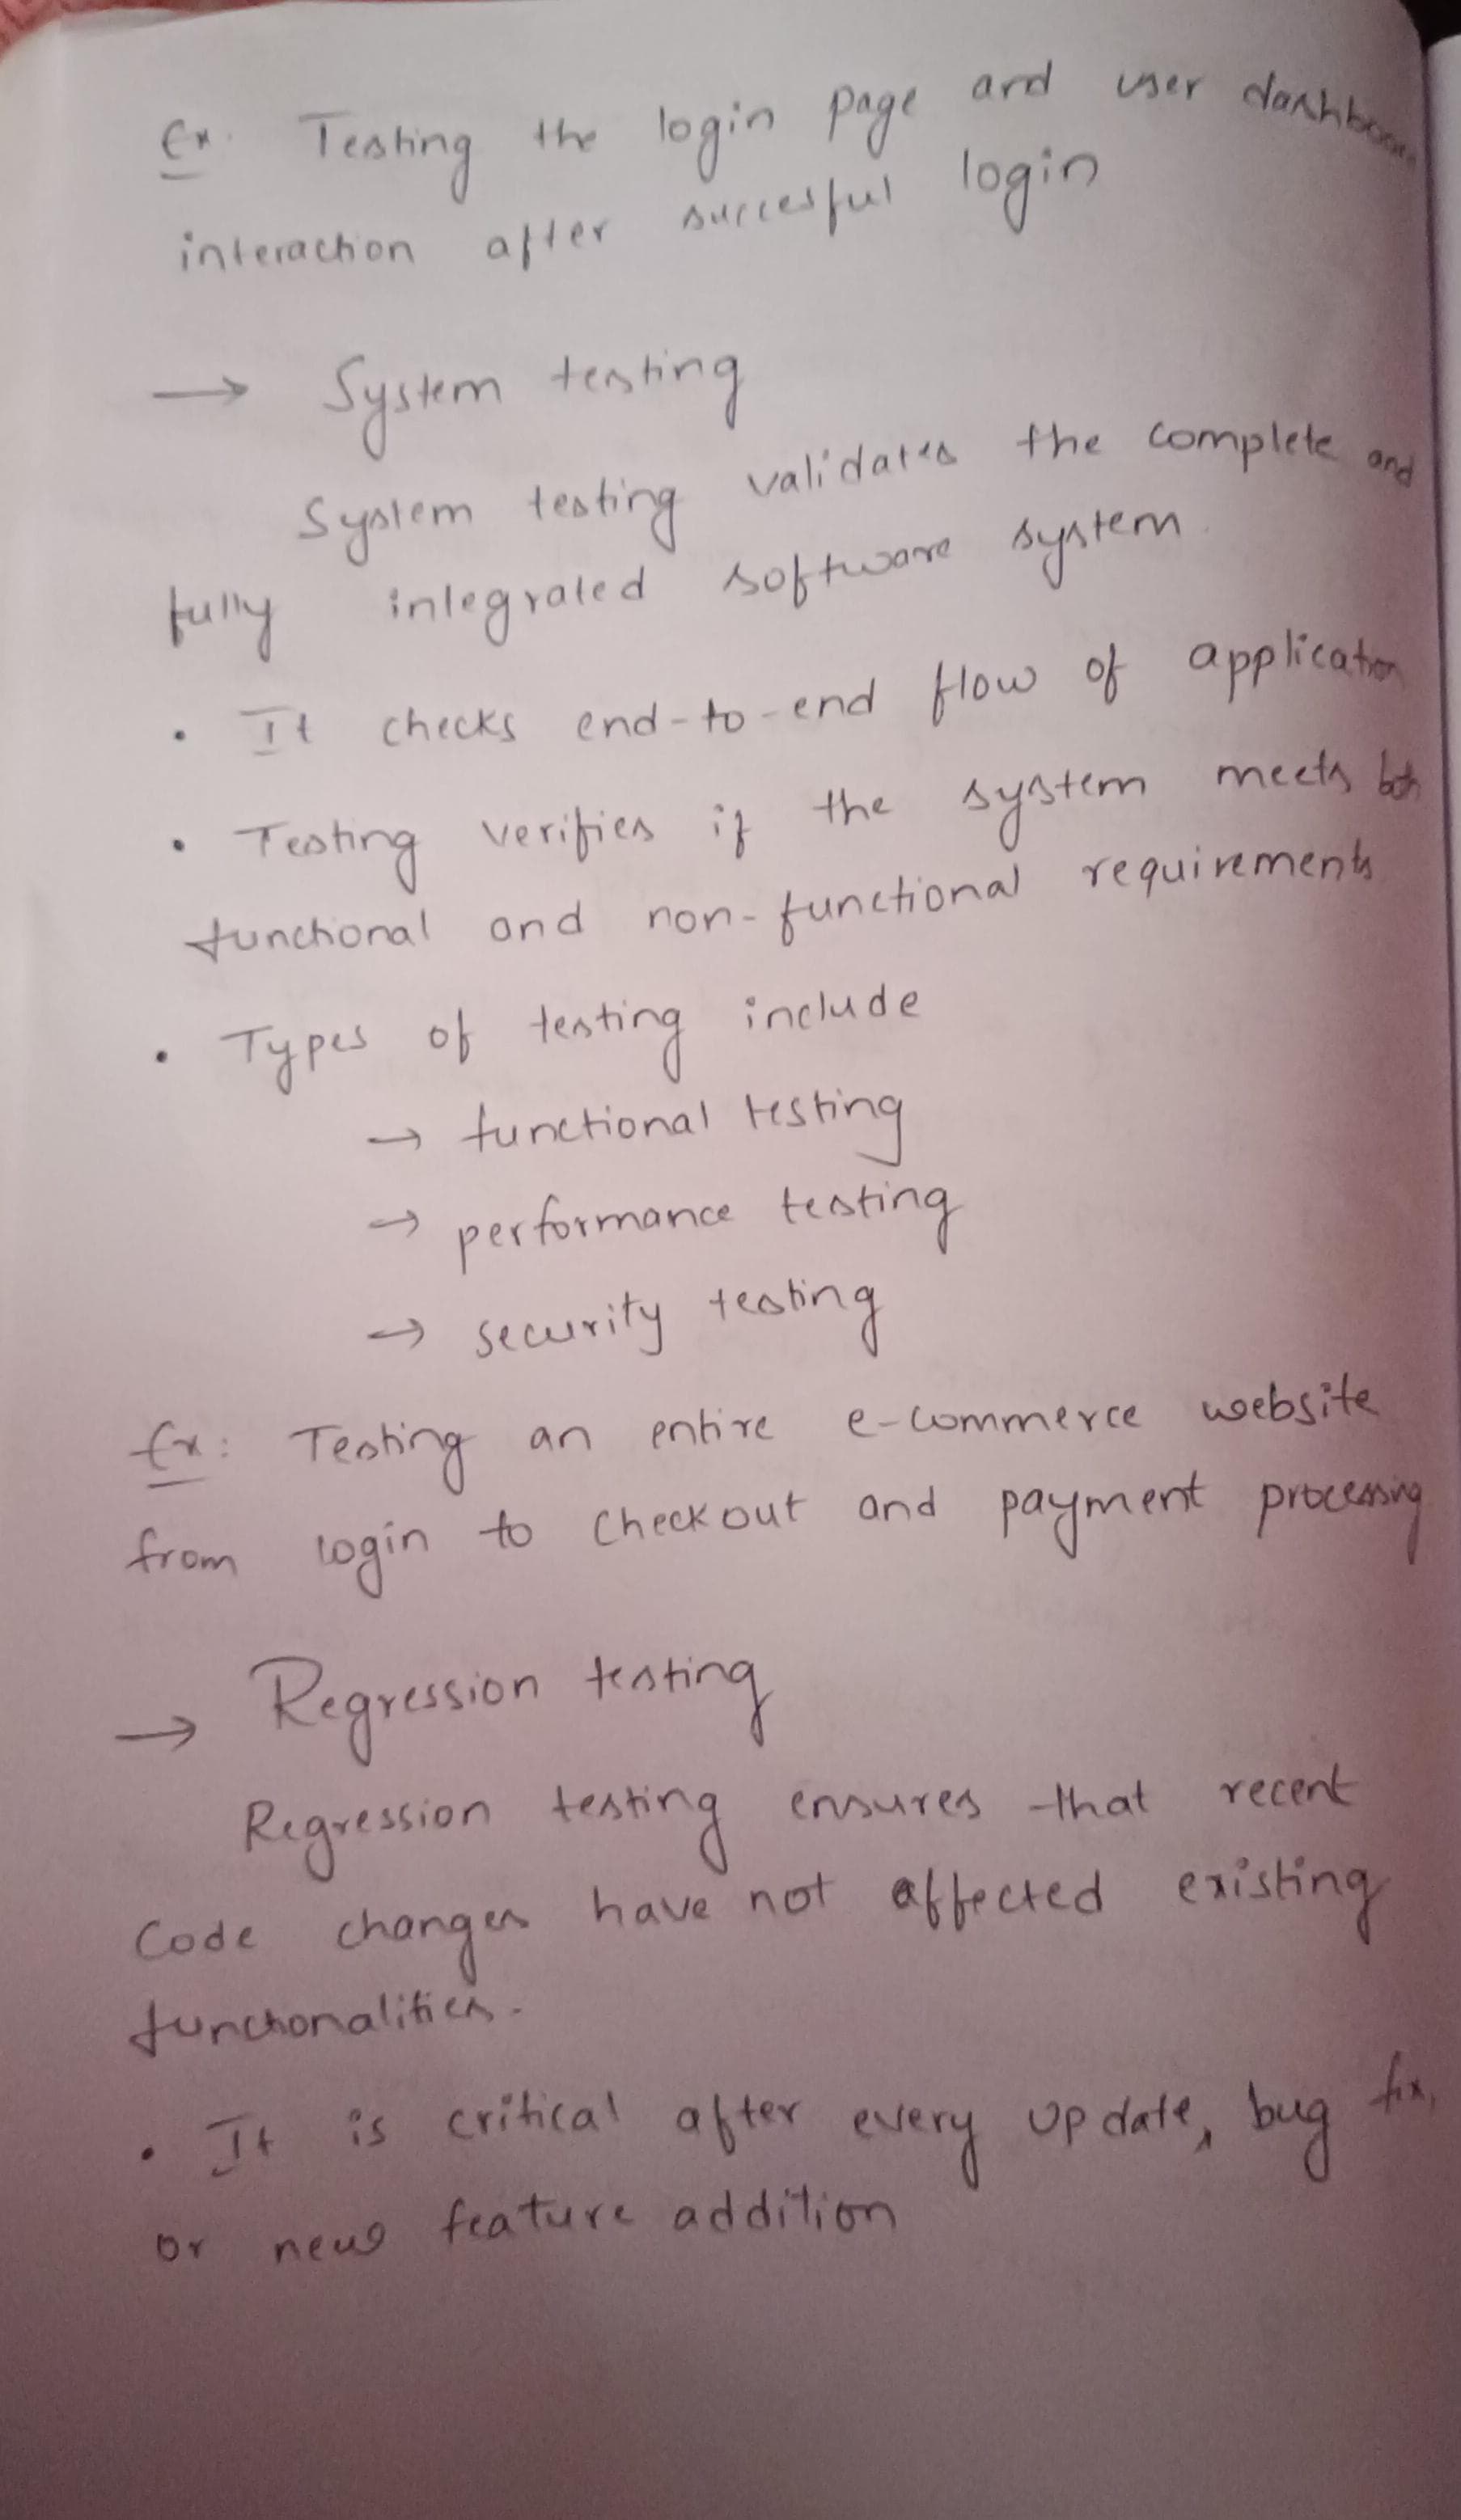 Ex. Testing the login page and user dashboard
interaction after succesful login
→ System testing
System testing validates the complete and
fully integrated software system.
• It checks end-to-end flow of application
• Testing verifies if the system meets both
functional and non-functional requirements
• Types of testing include
→ functional testing
→ performance testing
→ security testing
Ex: Testing an entire e-commerce website
from login to checkout and payment processing
→ Regression testing
Regression testing ensures that recent
code changes have not affected existing
functionalities.
• It is critical after every update, bug fix,
or new feature addition